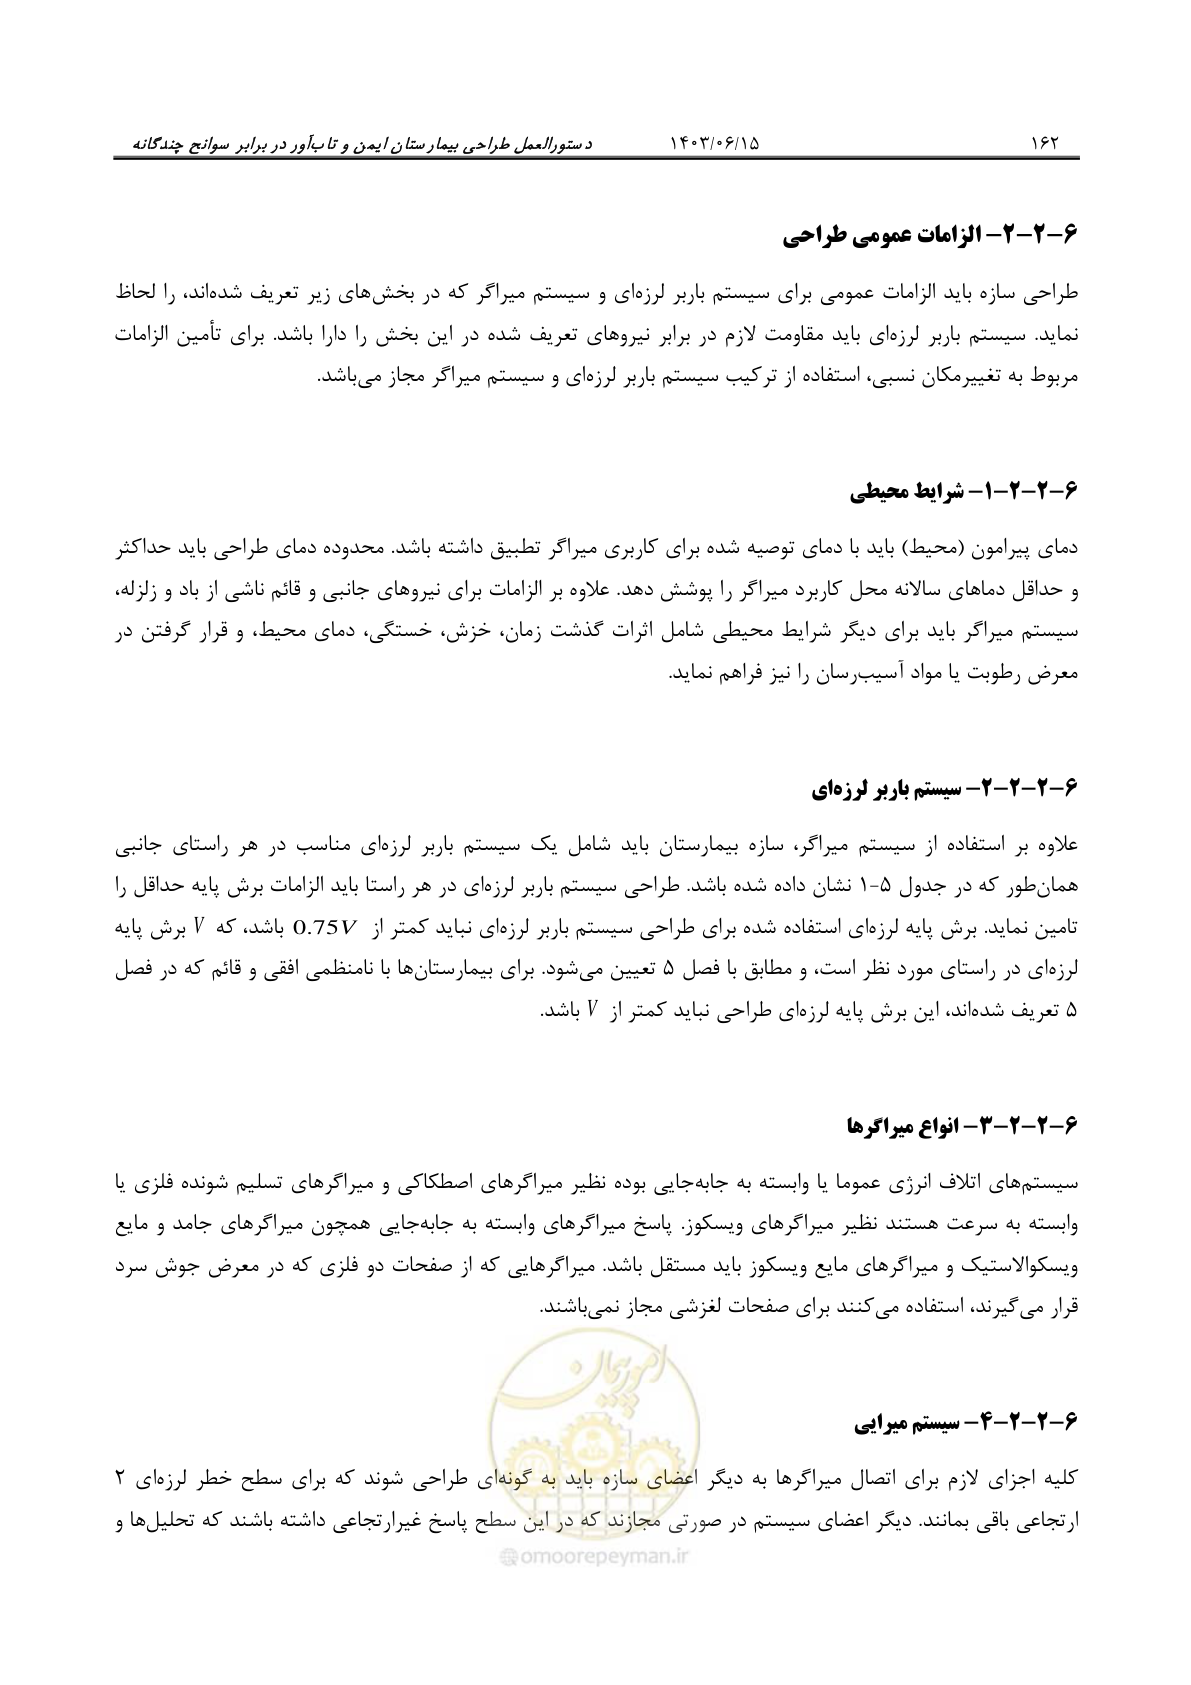 ۱۶۲ ۱۴۰۳/۰۶/۱۵ دستورالعمل طراحی بیمارستان ایمن و تاب‌آور در برابر سوانح چندگانه
۶-۲-۲- الزامات عمومی طراحی
طراحی سازه باید الزامات عمومی برای سیستم باربر لرزه‌ای و سیستم میراگر که در بخش‌های زیر تعریف شده‌اند، را لحاظ
نماید. سیستم باربر لرزه‌ای باید مقاومت لازم در برابر نیروهای تعریف شده در این بخش را دارا باشد. برای تأمین الزامات
مربوط به تغییرمکان نسبی، استفاده از ترکیب سیستم باربر لرزه‌ای و سیستم میراگر مجاز می‌باشد.
۶-۲-۲-۱- شرایط محیطی
دمای پیرامون (محیط) باید با دمای توصیه شده برای کاربری میراگر تطبیق داشته باشد. محدوده دمای طراحی باید حداکثر
و حداقل دماهای سالانه محل کاربرد میراگر را پوشش دهد. علاوه بر الزامات برای نیروهای جانبی و قائم ناشی از باد و زلزله،
سیستم میراگر باید برای دیگر شرایط محیطی شامل اثرات گذشت زمان، خزش، خستگی، دمای محیط، و قرار گرفتن در
معرض رطوبت یا مواد آسیب‌رسان را نیز فراهم نماید.
۶-۲-۲-۲- سیستم باربر لرزه‌ای
علاوه بر استفاده از سیستم میراگر، سازه بیمارستان باید شامل یک سیستم باربر لرزه‌ای مناسب در هر راستای جانبی
همان‌طور که در جدول ۵-۱ نشان داده شده باشد. طراحی سیستم باربر لرزه‌ای در هر راستا باید الزامات برش پایه حداقل را
تامین نماید. برش پایه لرزه‌ای استفاده شده برای طراحی سیستم باربر لرزه‌ای نباید کمتر از 0.75V باشد، که V برش پایه
لرزه‌ای در راستای مورد نظر است، و مطابق با فصل ۵ تعیین می‌شود. برای بیمارستان‌ها با نامنظمی افقی و قائم که در فصل
۵ تعریف شده‌اند، این برش پایه لرزه‌ای طراحی نباید کمتر از V باشد.
۶-۲-۲-۳- انواع میراگرها
سیستم‌های اتلاف انرژی عموما یا وابسته به جابه‌جایی بوده نظیر میراگرهای اصطکاکی و میراگرهای تسلیم شونده فلزی یا
وابسته به سرعت هستند نظیر میراگرهای ویسکوز. پاسخ میراگرهای وابسته به جابه‌جایی همچون میراگرهای جامد و مایع
ویسکوالاستیک و میراگرهای مایع ویسکوز باید مستقل باشد. میراگرهایی که از صفحات دو فلزی که در معرض جوش سرد
قرار می‌گیرند، استفاده می‌کنند برای صفحات لغزشی مجاز نمی‌باشند.
۶-۲-۲-۴- سیستم میرایی
کلیه اجزای لازم برای اتصال میراگرها به دیگر اعضای سازه باید به گونه‌ای طراحی شوند که برای سطح خطر لرزه‌ای ۲
ارتجاعی باقی بمانند. دیگر اعضای سیستم در صورتی مجازند که در این سطح پاسخ غیرارتجاعی داشته باشند که تحلیل‌ها و
امور پیمان
@omoorepeyman.ir